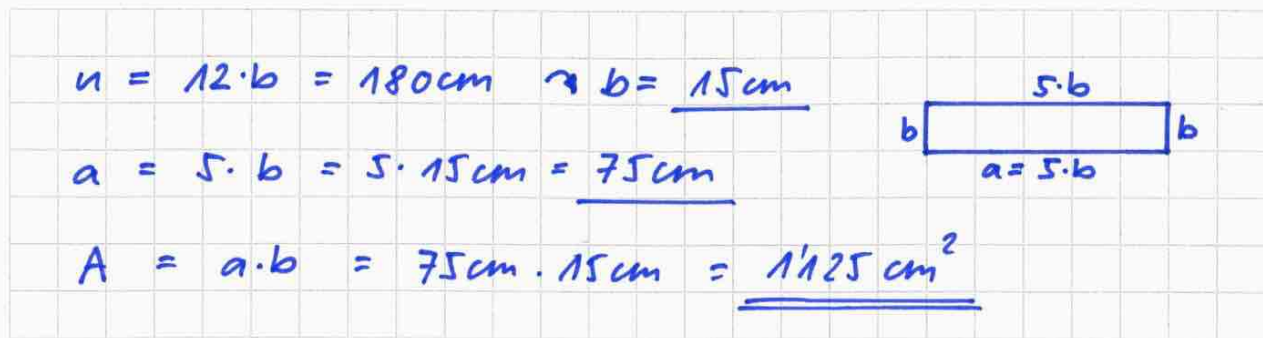 u = 12·b = 180cm ↷ b = 15cm
a = 5·b = 5·15cm = 75cm
A = a·b = 75cm·15cm = 1'125 cm²
5·b
b
b
a = 5·b